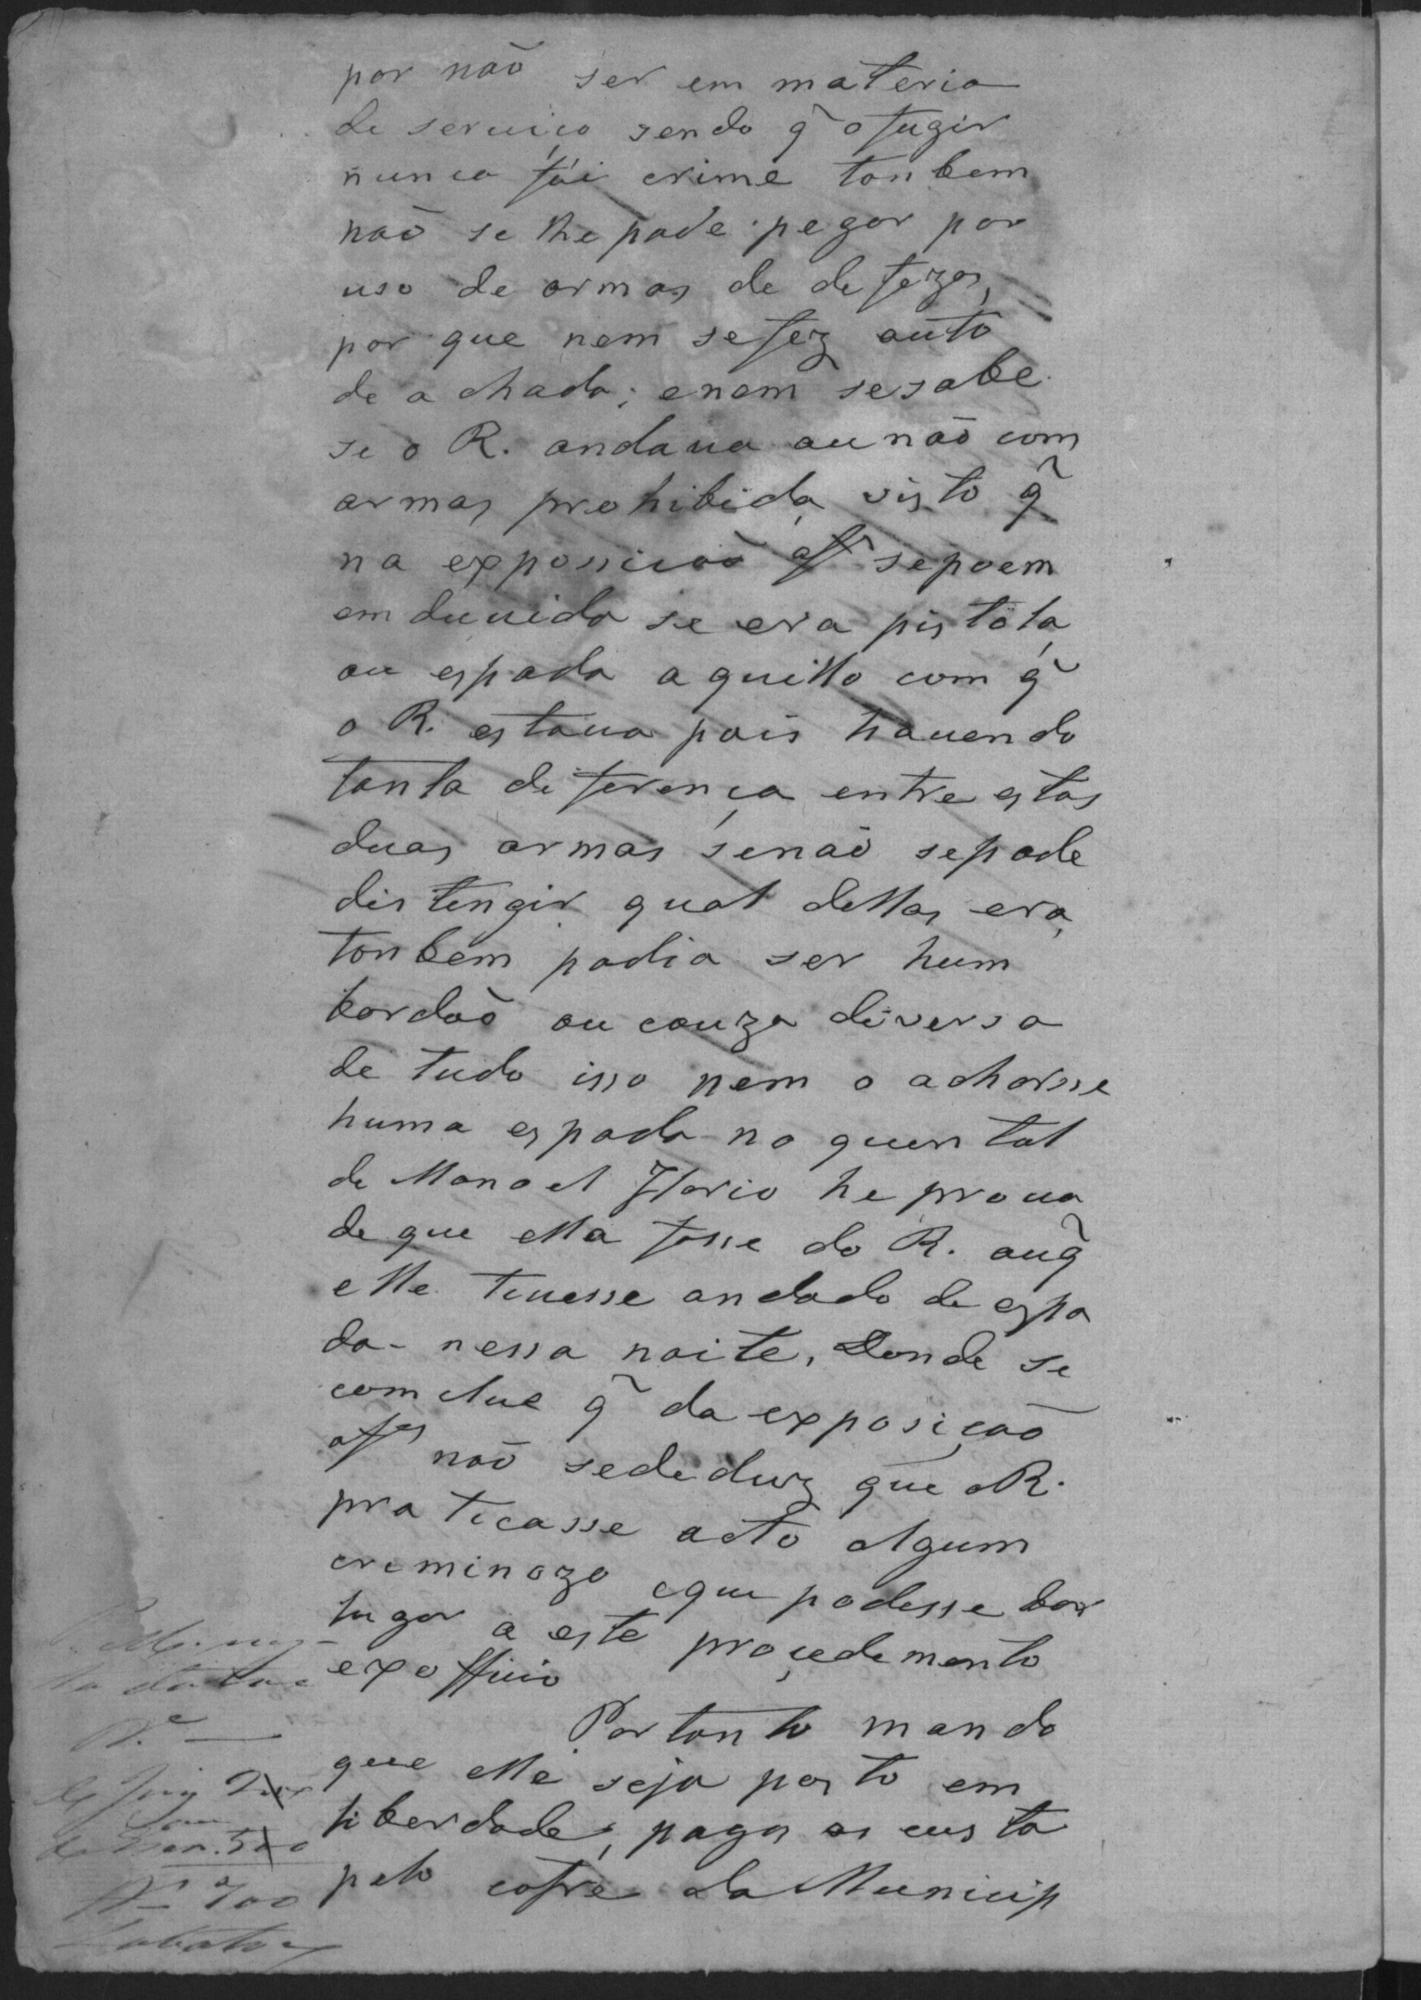 por não ser em materia
de serviço sendo q̃ o fugir
nunca fói crime tanbem
não se lhe pode pegar por
uso de armas de defezas,
por que nem se fez auto
de achada; e nem se sabe
se o R. andava ou não com
armas prohibida visto q̃
na exposicão afs se poem
em duvida se era pistóla,
ou espada aquillo com q̃
o R. estava pois havendo
tanta diferença entre estas
duas armas se não se pode
distingir qual dellas era,
tanbem podia ser hum
bordão ou couza diversa
de tudo isso nem o acharsse
huma espada no quintal
de Manoel Florio he prova
de que ella fosse do R. ou q̃
elle tivesse andado de espa
da - nessa noite, Donde se
comclue q̃ da exposição
afs não se deduz que o R.
praticasse acto algum
creminozo e que podesse dar
lugar a este proçedimento
exofficio
Portanto mando
que elle seja posto em
liberdade, pagas as custa
pelo cofre da Municip
Nº
500
700
Lobato